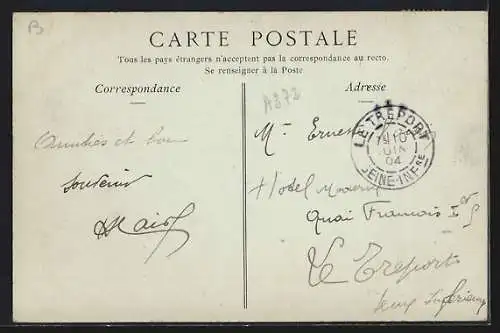 B
CARTE POSTALE
Tous les pays étrangers n'acceptent pas la correspondance au recto.
Se renseigner à la Poste
Correspondance
Adresse
A372
Amitiés et bon
souvenir
Mr Ernest
LE TREPORT
10
JUIN
04
SEINE-INFRE
Hotel Moderne
Quai François Ier
Le Treport
Seine Inférieure